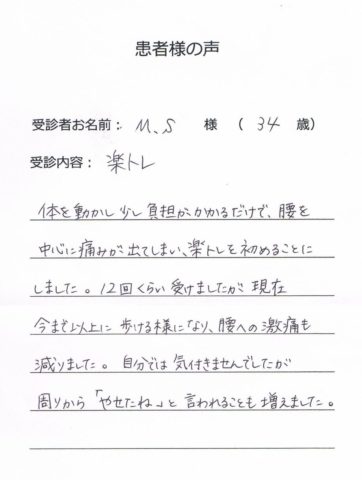 患者様の声
受診者お名前： M、S 様 （ 34 歳）
受診内容： 楽トレ
体を動かし少し負担がかかるだけで、腰を
中心に痛みが出てしまい、楽トレを初めることに
しました。12回くらい受けましたが現在
今まで以上に歩ける様になり、腰への激痛も
減りました。自分では気付きませんでしたが
周りから「やせたね」と言われることも増えました。